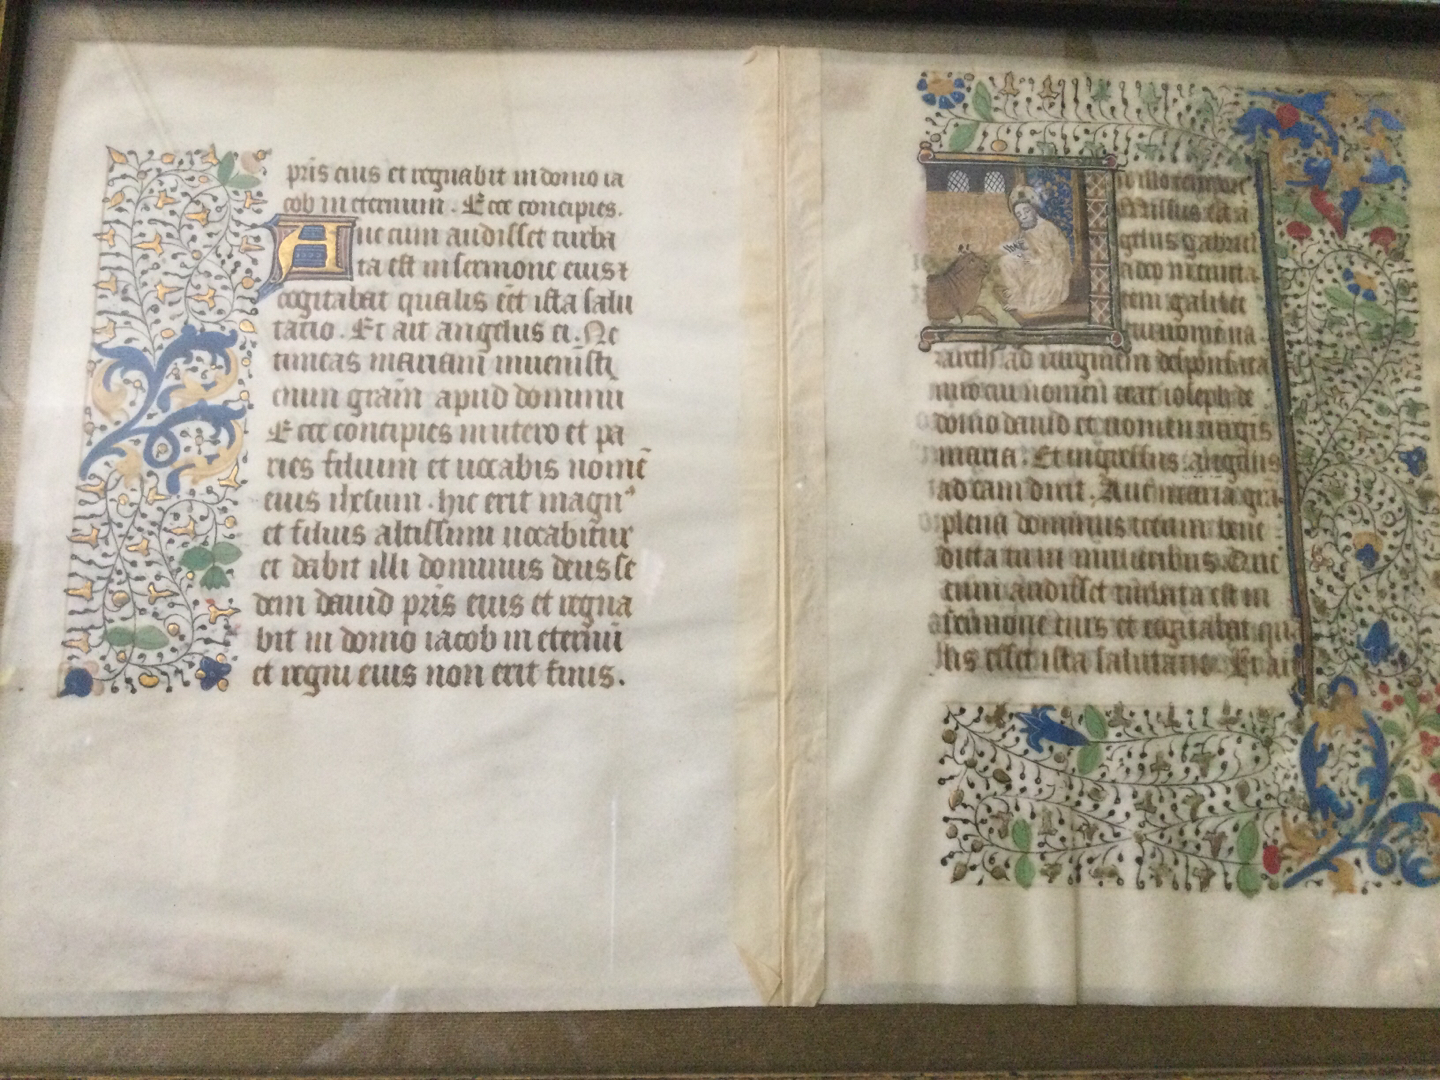 pris eius et regnabit in domo ia
cob in eternum. Ecce concipies.
Que cum audisset turba
ta est in sermone eius et
cogitabat qualis eēt ista salu
tatio. Et ait angelus ei. Ne
timeas maria inuenisti
enim gram apud dominū
Ecce concipies in utero et pa
ries filium et uocabis nomē
eius ihesum. hic erit magnꝰ
et filius altissimi uocabitur
et dabit illi dominus deus se
dem dauid pris eius et regna
bit in domo iacob in eternū
et regni eius non erit finis.
In illo tempore
Missus est a
gelus gabriel
a deo in ciuita
tem galilee
cui nomen na
zareth ad uirginem desponsata
uiro cui nomen erat ioseph de
domo dauid et nomen uirgīs
maria. Et ingressus angelus
ad eam dixit. Aue maria gra
plena dominus tecum bene
dicta tu in mulieribus. Que
cum audisset turbata est in
sermone eius et cogitabat qua
lis esset ista salutatio. Et ait